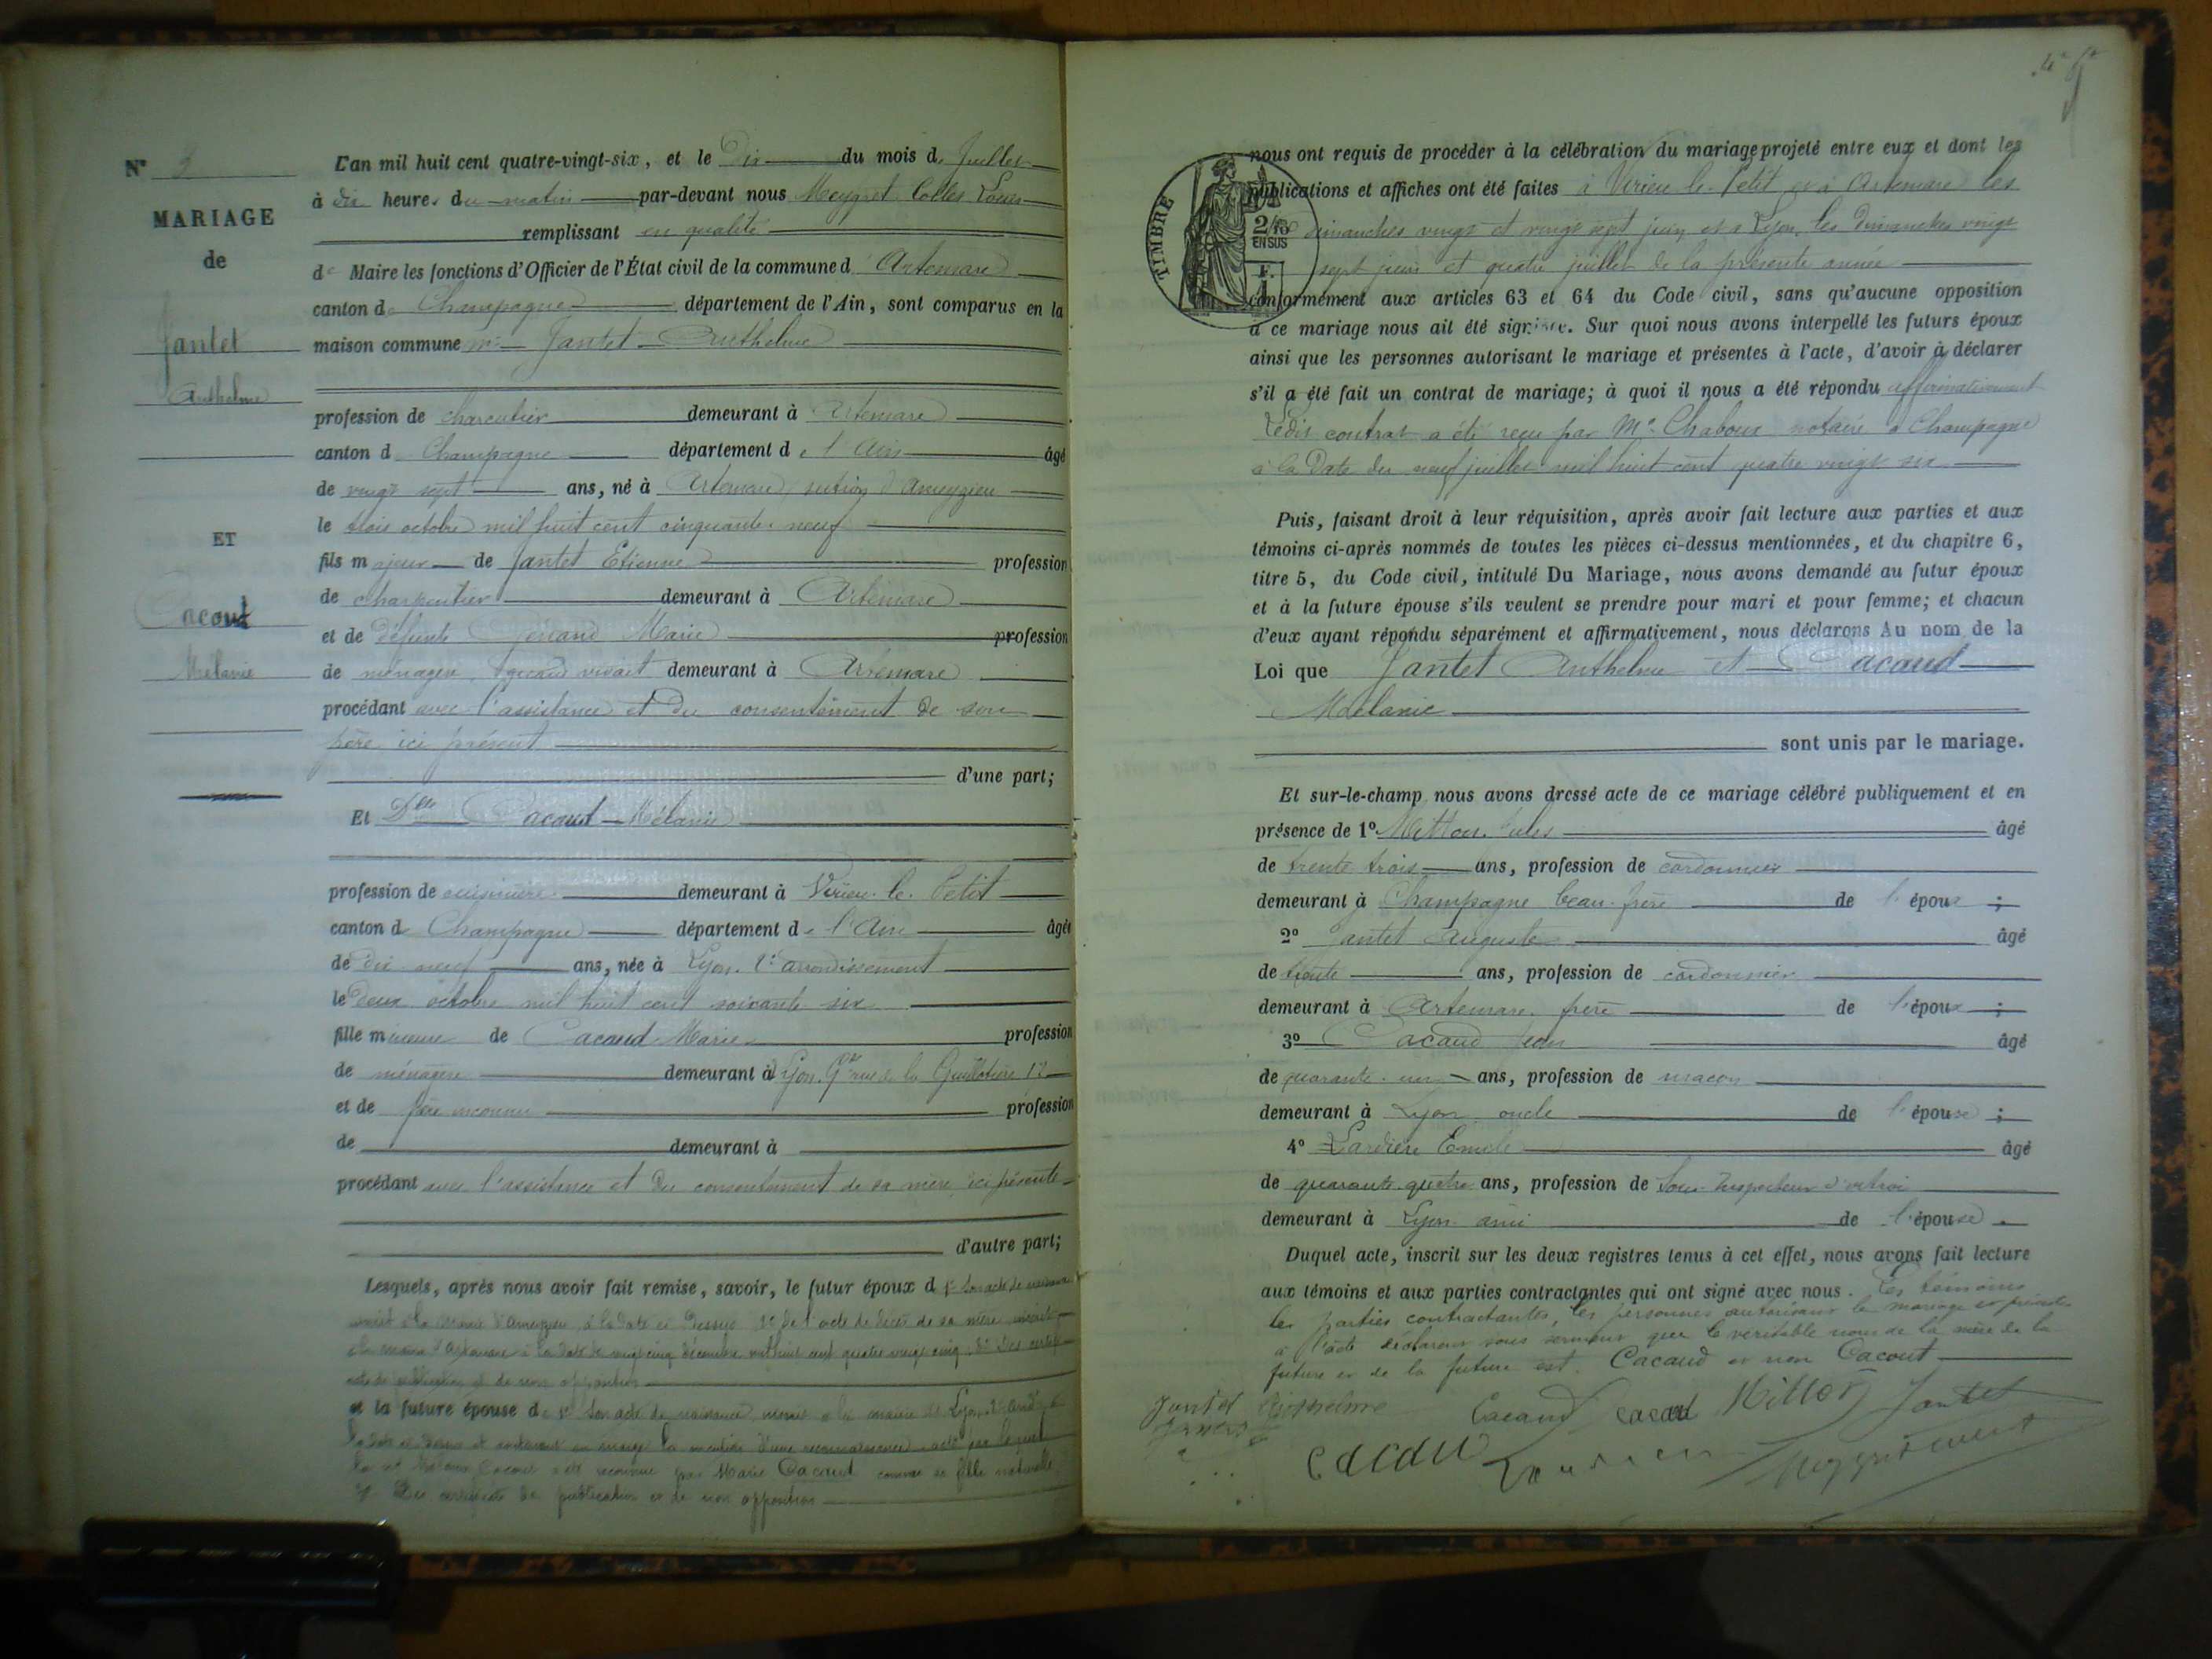 N°
MARIAGE
de
Jantet
Anthelme
ET
Cacout
Mélanie
L'an mil huit cent quatre-vingt-six, et le Dix du mois de Juillet
à dix heures du matin par-devant nous Meygret Collet Louis
remplissant en qualité
de Maire les fonctions d'Officier de l'État civil de la commune d'Artemare
canton de Champagne département de l'Ain, sont comparus en la
maison commune Jantet Anthelme
profession de charcutier demeurant à Artemare
canton d Champagne département de l'Ain âgé
de vingt sept ans, né à Artemare, section d'Ameyzieu
le trois octobre mil huit cent cinquante neuf
fils majeur de Jantet Etienne profession
de charpentier demeurant à Artemare
et de défunte Marie profession
de ménagère, quand vivait demeurant à Artemare
procédant avec l'assistance et du consentement de son
père ici présent
d'une part;
Et Dlle Cacout Mélanie
profession de cuisinière demeurant à Virieu-le-Petit
canton de Champagne département de l'Ain âgée
de dix neuf ans, née à Lyon, 2e arrondissement
le Deux octobre mil huit cent soixante six
fille mineure de Cacaud Marie profession
de ménagère demeurant à Lyon, Gde rue de la Guillotière 12
et de père inconnu profession
de demeurant à
procédant avec l'assistance et du consentement de sa mère, ici présente
d'autre part;
Lesquels, après nous avoir fait remise, savoir, le futur époux de 1° son acte de naissance
inscrit à la mairie d'Ameyzieu, à la date ci-dessus 2° de l'acte de décès de sa mère, inscrit
à la mairie d'Artemare à la date du vingt cinq décembre mil huit cent quatre vingt cinq 3° Des certifi-
cats de publication et de non opposition
et la future épouse de 1° son acte de naissance, inscrit à la mairie de Lyon, 2e arrt à
la date ci-dessus et contenant en marge la mention d'une reconnaissance acte par lequel
la Mélanie Cacout a été reconnue par Marie Cacaud comme sa fille naturelle
2° Des certificats de publication et de non opposition
TIMBRE
2/10
EN SUS
nous ont requis de procéder à la célébration du mariage projeté entre eux et dont les
publications et affiches ont été faites à Virieu-le-Petit et à Artemare les
dimanches vingt et vingt sept juin et à Lyon, les Dimanches vingt
sept juin et quatre juillet de la présente année
conformément aux articles 63 et 64 du Code civil, sans qu'aucune opposition
à ce mariage nous ait été signifiée. Sur quoi nous avons interpellé les futurs époux
ainsi que les personnes autorisant le mariage et présentes à l'acte, d'avoir à déclarer
s'il a été fait un contrat de mariage; à quoi il nous a été répondu affirmativement
Ledit contrat a été reçu par Me Chaboux notaire à Champagne
à la Date du neuf juillet mil huit cent quatre vingt six
Puis, faisant droit à leur réquisition, après avoir fait lecture aux parties et aux
témoins ci-après nommés de toutes les pièces ci-dessus mentionnées, et du chapitre 6,
titre 5, du Code civil, intitulé Du Mariage, nous avons demandé au futur époux
et à la future épouse s'ils veulent se prendre pour mari et pour femme; et chacun
d'eux ayant répondu séparément et affirmativement, nous déclarons Au nom de la
Loi que Jantet Anthelme et Cacaud
Mélanie
sont unis par le mariage.
Et sur-le-champ nous avons dressé acte de ce mariage célébré publiquement et en
présence de 1° Mitton Jules âgé
de trente trois ans, profession de cordonnier
demeurant à Champagne beau-frère de l'époux ;
2° Jantet Auguste âgé
de trente ans, profession de cordonnier
demeurant à Artemare, frère de l'époux ;
3° Cacaud Jean âgé
de quarante-un ans, profession de maçon
demeurant à Lyon, oncle de l'épouse ;
4° Lardière Emile âgé
de quarante-quatre ans, profession de Sous-Inspecteur d'octroi
demeurant à Lyon ami de l'épouse .
Duquel acte, inscrit sur les deux registres tenus à cet effet, nous avons fait lecture
aux témoins et aux parties contractantes qui ont signé avec nous. Les témoins
les parties contractantes, les personnes autorisant le mariage et présentes
à l'acte déclarent sous serment que le véritable nom de la mère de la
future et de la future est Cacaud et non Cacout
Jantet Anthelme Cacaud cacaud Mitton Jantet
cacau